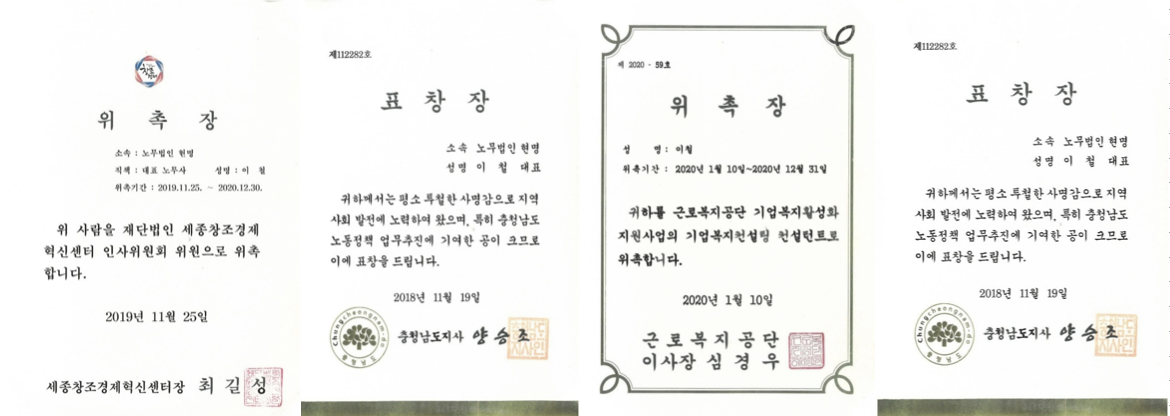 위 촉 장
소속 : 노무법인 현명
직책 : 대표 노무사 성명 : 이 철
위촉기간 : 2019.11.25. ~ 2020.12.30.
위 사람을 재단법인 세종창조경제
혁신센터 인사위원회 위원으로 위촉
합니다.
2019년 11월 25일
세종창조경제혁신센터장 최 길 성
제112282호
표 창 장
소속 노무법인 현명
성명 이 철 대표
귀하께서는 평소 투철한 사명감으로 지역
사회 발전에 노력하여 왔으며, 특히 충청남도
노동정책 업무추진에 기여한 공이 크므로
이에 표창을 드립니다.
2018년 11월 19일
Chungcheongnam-do
충청남도지사 양 승 조
제 2020 - 59호
위 촉 장
성 명 : 이철
위촉기간 : 2020년 1월 10일~2020년 12월 31일
귀하를 근로복지공단 기업복지활성화
지원사업의 기업복지컨설팅 컨설턴트로
위촉합니다.
2020년 1월 10일
근 로 복 지 공 단
이 사 장 심 경 우
제112282호
표 창 장
소속 노무법인 현명
성명 이 철 대표
귀하께서는 평소 투철한 사명감으로 지역
사회 발전에 노력하여 왔으며, 특히 충청남도
노동정책 업무추진에 기여한 공이 크므로
이에 표창을 드립니다.
2018년 11월 19일
Chungcheongnam-do
충청남도지사 양 승 조